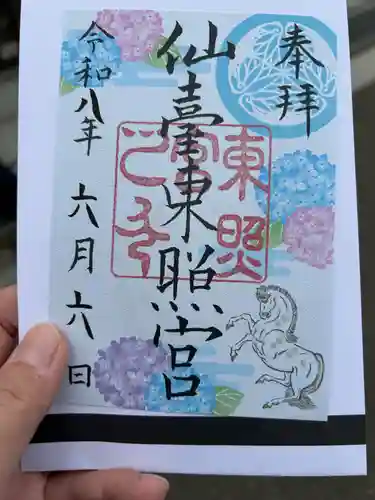 奉拝
仙臺東照宮
東照宮
令和八年 六月六日